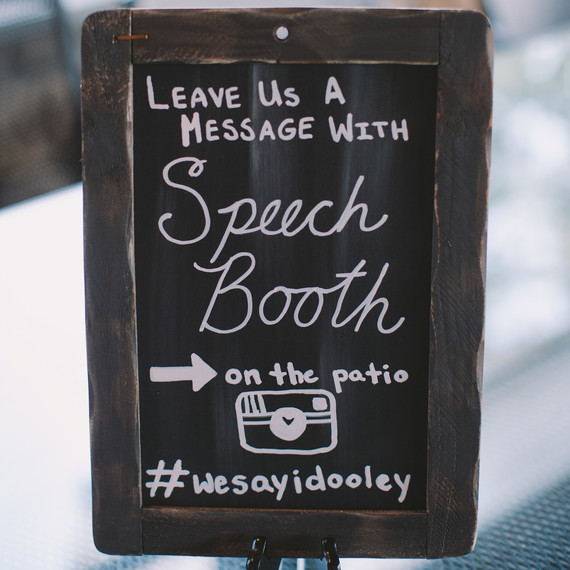 LEAVE US A
MESSAGE WITH
Speech
Booth
on the patio
#wesayidooley